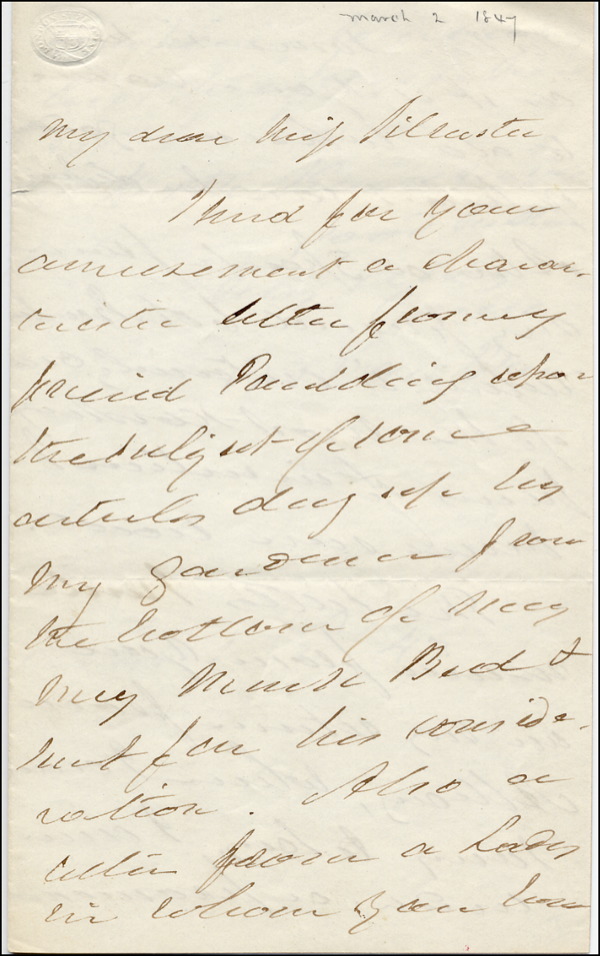 March 2 1847
My dear Miss
I send for your
amusement a charac-
teristic letter from my
friend Paulding upon
the subject of some
articles dug up by
my Gardener from
the bottom of my
my Muck Bed &
sent for his conside-
ration. Also a
letter from a Lady
in whom you have